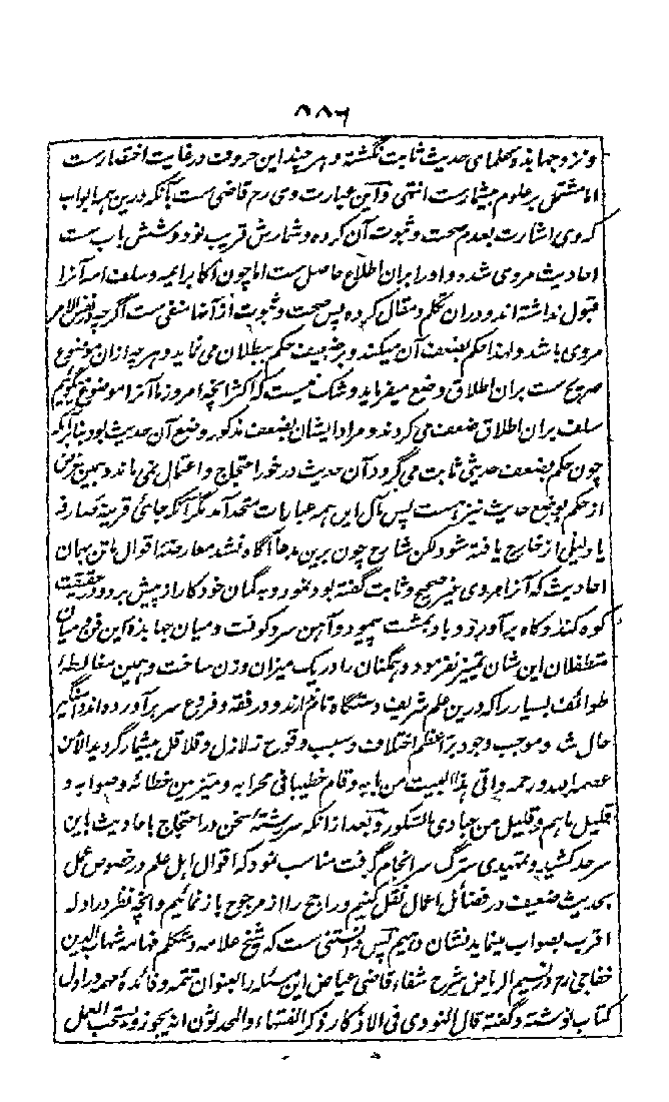 ۸۸۶
ونزد جهابذه و علمای حدیث ثابت نگشته و هر چند این حروف در غایت اختصارست
اما مشتمل بر علوم بیشمارست انتهی و این عبارت وی رح قاضی ست بآنکه درین همه ابواب
که وی اشارت بعدم صحت و ثبوت آن کرده و شمارش قریب نود و شش باب ست
احادیث مروی شده و او را بران اطلاع حاصل ست اما چون اکابر ائمه و سلف امه آنرا
قبول نداشته اند و دران تکلم و مقال کرده پس صحت و ثبوت از آنها منفی ست اگرچه در نفس الامر
مروی باشد و لهذا حکم بضعف آن میکند و بر ضعیف حکم ببطلان می نماید و هر چه ازان موضوع
صریح ست بران اطلاق وضع میفرماید و شک نیست که اکثر آنچه امروز ما آنرا موضوع گوییم
سلف بران اطلاق ضعف می کردند و مراد ایشان بضعف مذکور وضع آن حدیث بود بنا بر آنکه
چون حکم بضعف حدیثی ثابت می گردد آن حدیث در خور احتجاج و اعتمال نمی ماند و همین غرض
از حکم بوضع حدیث نیز هست پس مآل این همه عبارات متحد آمد مگر آنکه جائی قرینه صارفه
یا دلیلی از خارج یافته شود لکن شارح چون برین مدعا آگاه نشد معارضه اقوال ماتن بهمان
احادیث که آنرا مروی غیر صحیح و ثابت گفته بود نمود و بگمان خود کار از پیش برد و در حقیقت
کوه کند و کاه برآورد و باد بمشت پیمود و آهن سرد کوفت و میان جهابذه این فن و میان
متطفلان این شان تمییز نفرمود و همگنان را در یک میزان وزن ساخت و همین مغالطه
طوائف بسیار را که درین علم شریف دستگاه تام ندارند و در فقه و فروع سر برآورده اند دامنگیر
حال شد و موجب وجود بر اعظم اختلاف و سبب وقوع زلازل و قلاقل بیشمار گردید الا من
عصمه الله و رحمه واقی هذا البیت من بابه و قام خطیبا فی محرابه و میز بین خطائه و صوابه و
قلیل ما هم و قلیل من عبادی الشکور و بعد از آنکه سررشته سخن در احتجاج باحادیث باین
سرحد کشید و تمهیدی سترگ سرانجام گرفت مناسب نمود که اقوال اهل علم در خصوص عمل
بحدیث ضعیف در فضائل اعمال نقل کنیم و راجح را از مرجوح باز نمائیم و آنچه نظر در ادله
اقرب بصواب مینماید نشان دهیم پس دانستنی ست که شیخ علامه و متکلم فهامه شهاب الدین
خفاجی رح در نسیم الریاض شرح شفاء قاضی عیاض این مسئله را بعنوان تتمه و فائده مهمه در اول
کتاب نوشته و گفته قال النووی فی الاذکار ذکر الفقهاء والمحدثون انه یجوز و یستحب العمل